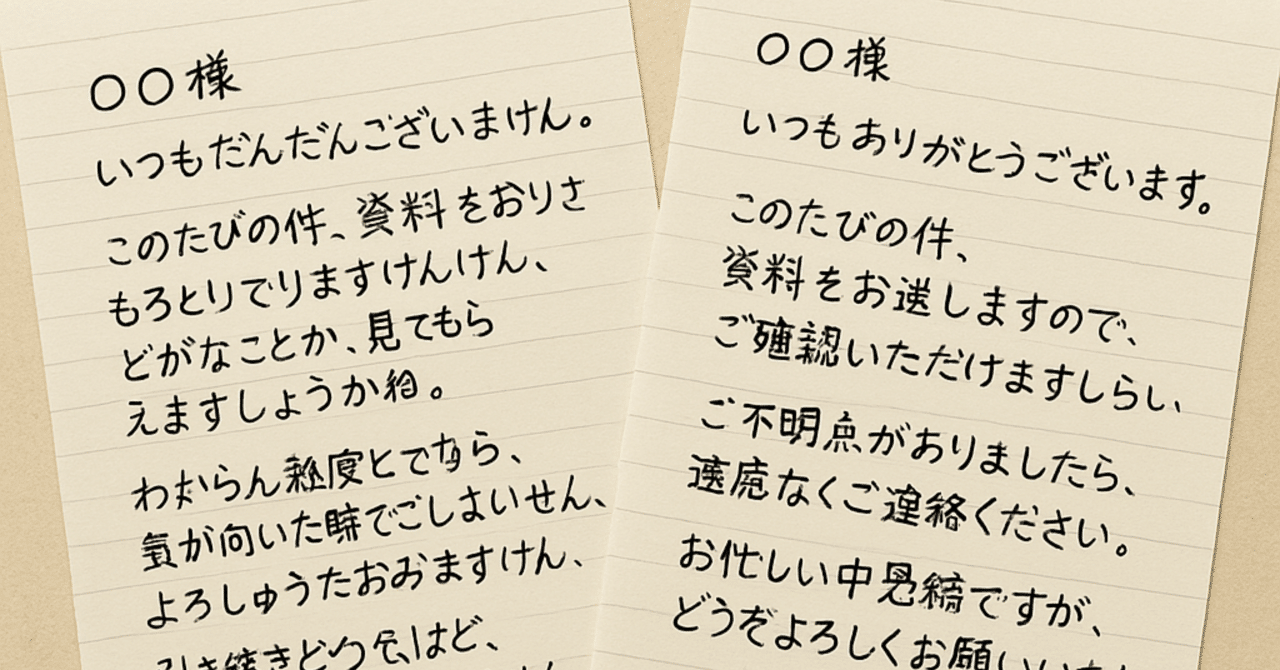 〇〇様
いつもだんだんございまけん。
このたびの件、資料をおりさ
もろとりでりますけんけん、
どがなことか、見てもら
えますしょうか。
わからん度とでなら、
気が向いた時でごしまいせん、
よろしゅうたおおますけん、
引き続きどうはど、
〇〇様
いつもありがとうございます。
このたびの件、
資料をお送しますので、
ご認いただけますしらい、
ご不明点がありましたら、
遠慮なくご連絡ください。
お忙しい中ですが、
どうぞよろしくお願いいた